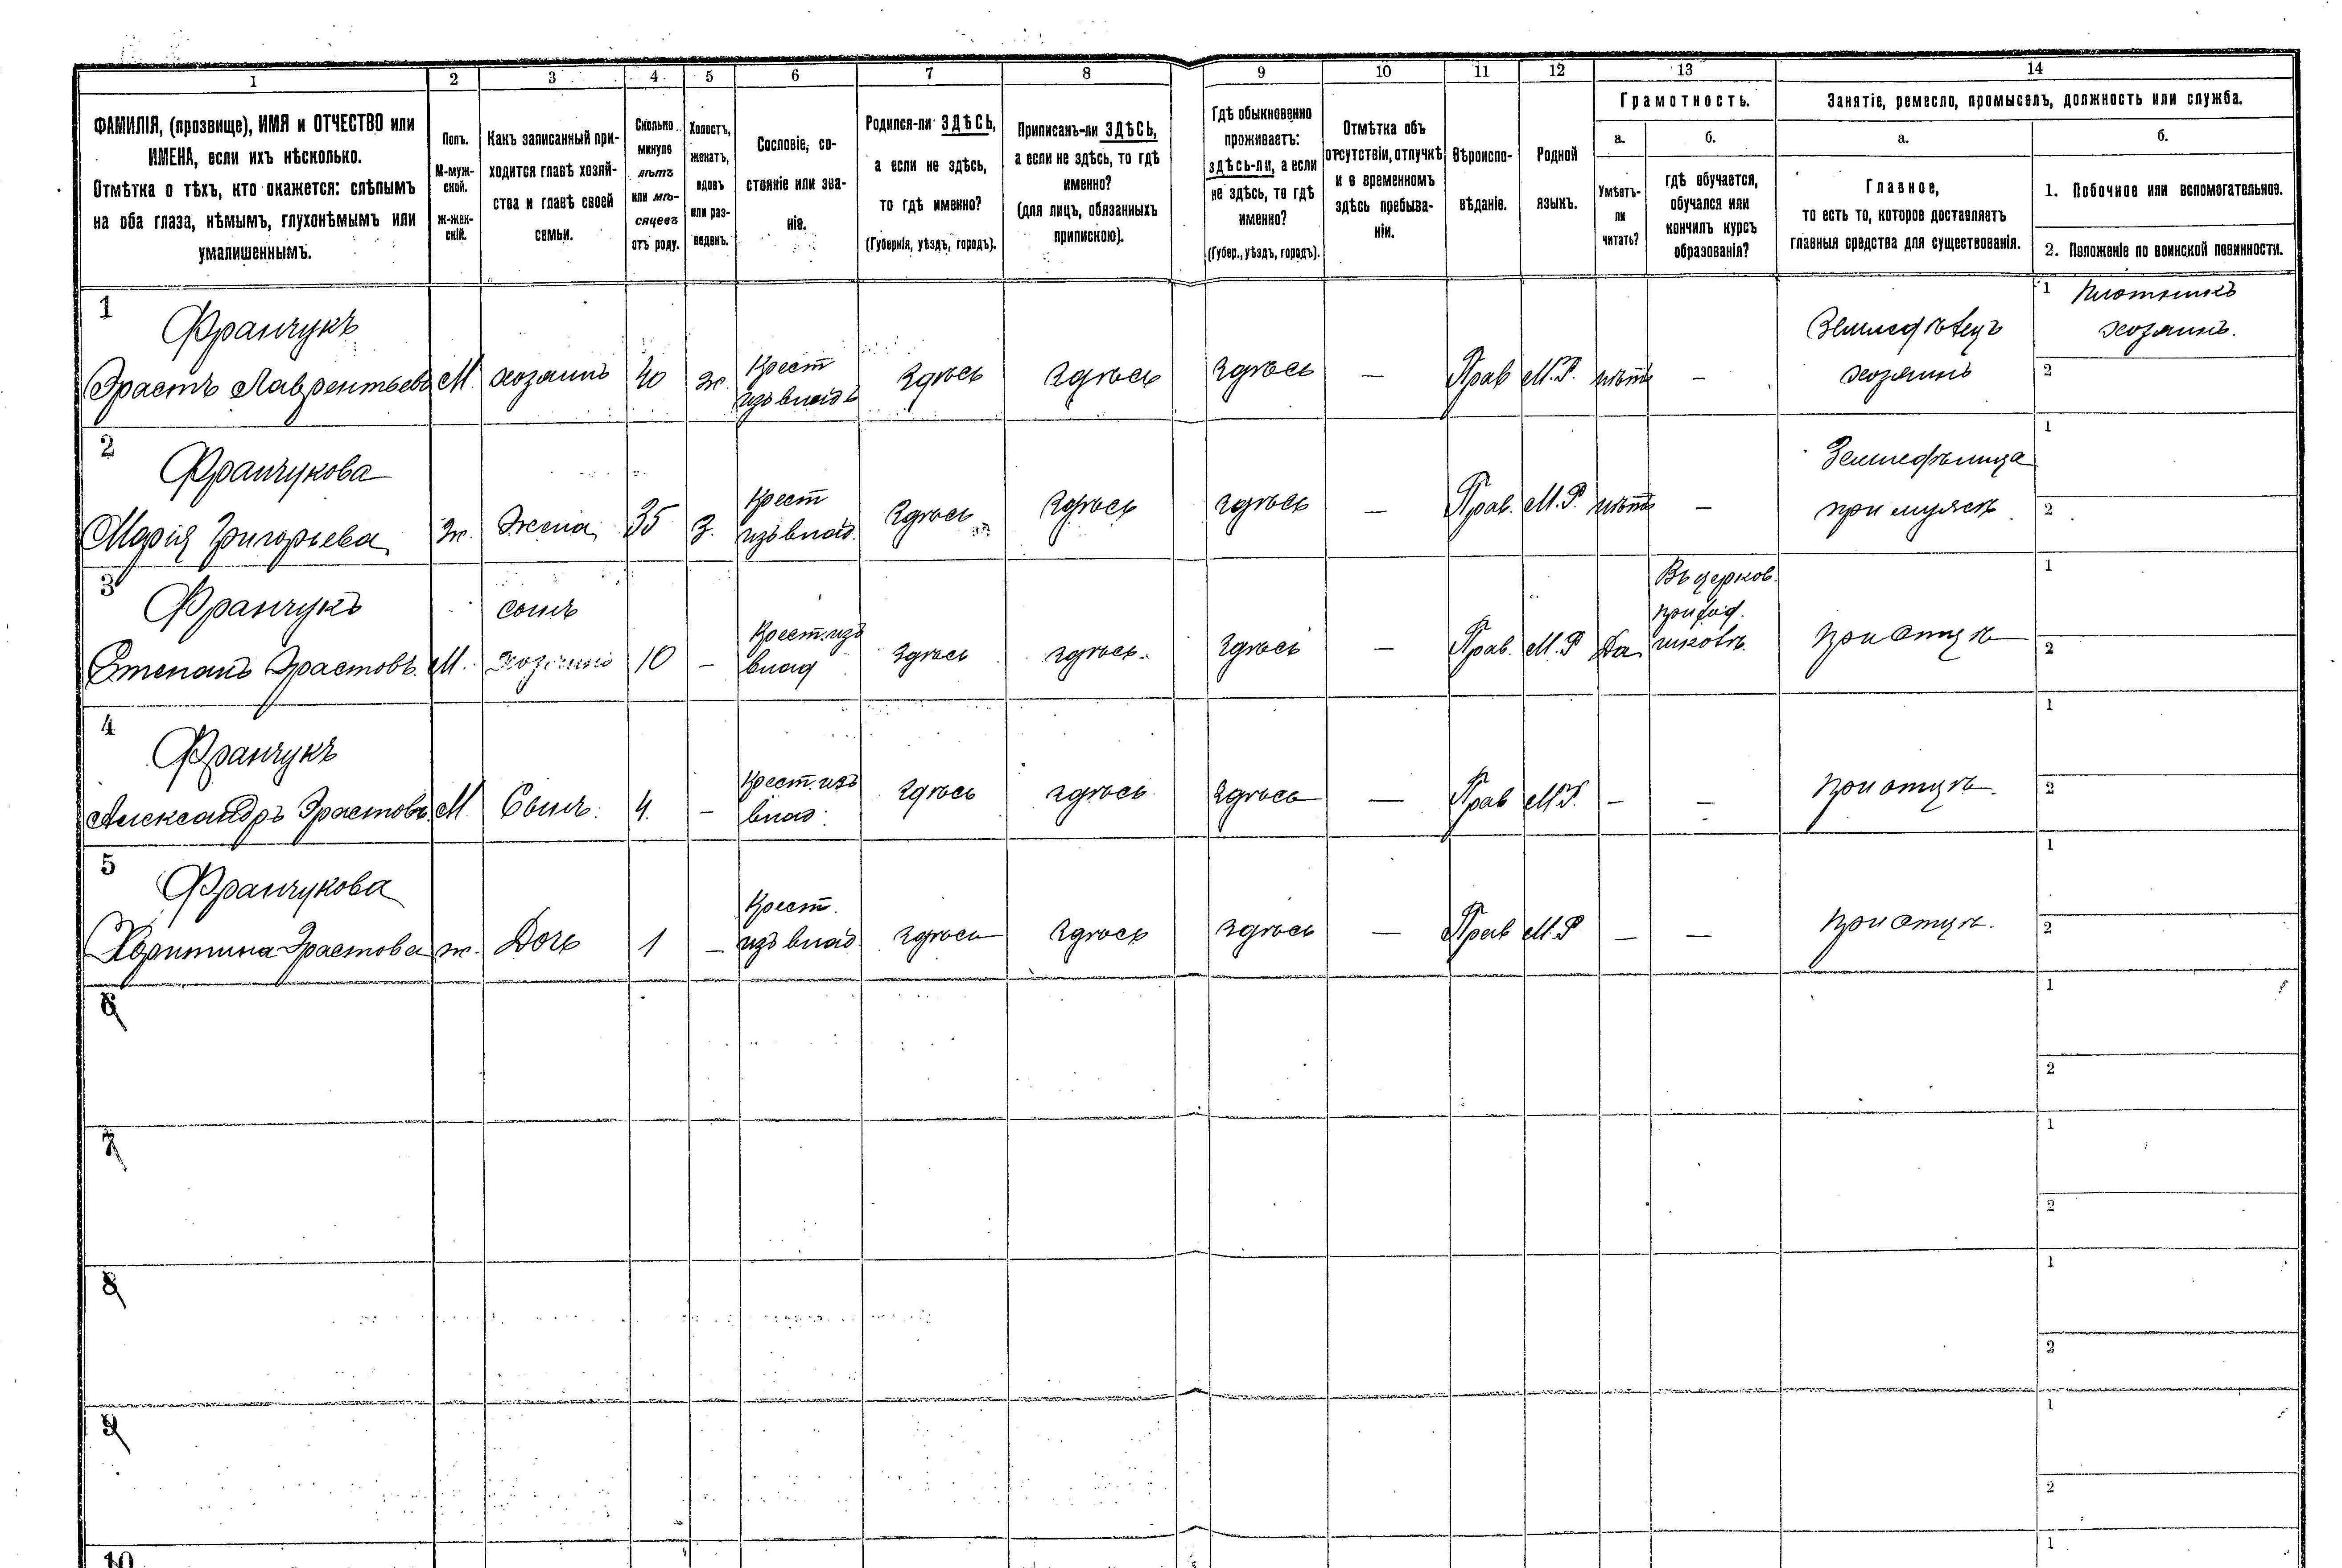 1 2 3 4 5 6 7 8 9 10 11 12 13 14
ФАМИЛІЯ, (прозвище), ИМЯ и ОТЧЕСТВО или
ИМЕНА, если ихъ нѣсколько.
Отмѣтка о тѣхъ, кто окажется: слѣпымъ
на оба глаза, нѣмымъ, глухонѣмымъ или
умалишеннымъ.
Полъ.
М-муж-
ской.
ж-жен-
скій.
Какъ записанный при-
ходится главѣ хозяй-
ства и главѣ своей
семьи.
Сколько
минуло
лѣтъ
или мѣ-
сяцевъ
отъ роду.
Холостъ,
женатъ,
вдовъ
или раз-
веденъ.
Сословіе, со-
стояніе или зва-
ніе.
Родился-ли ЗДѢСЬ,
а если не здѣсь,
то гдѣ именно?
(Губернія, уѣздъ, городъ).
Приписанъ-ли ЗДѢСЬ,
а если не здѣсь, то гдѣ
именно?
(для лицъ, обязанныхъ
припискою).
Гдѣ обыкновенно
проживаетъ:
здѣсь-ли, а если
не здѣсь, то гдѣ
именно?
(Губер., уѣздъ, городъ).
Отмѣтка объ
отсутствіи, отлучкѣ
и о временномъ
здѣсь пребыва-
ніи.
Вѣроиспо-
вѣданіе.
Родной
языкъ.
Грамотность.
а.
Умѣетъ-
ли
читать?
б.
гдѣ обучается,
обучался или
кончилъ курсъ
образованія?
Занятіе, ремесло, промыселъ, должность или служба.
а.
Главное,
то есть то, которое доставляетъ
главныя средства для существованія.
б.
1. Побочное или вспомогательное.
2. Положеніе по воинской повинности.
1
Франчукъ
Эрастъ Лаврентьевъ М. хозяинъ 40 ж. Крест
изъ влад здѣсь здѣсь здѣсь — Прав М.Р. нѣтъ —
Земледѣлецъ
хозяинъ
1 Плотникъ
хозяинъ.
2
2
Франчукова
Марія Григорьева ж. Жена 35 з. Крест
изъ влад. здѣсь здѣсь здѣсь — Прав. М.Р. нѣтъ —
при мужѣ
1
2
3
Франчукъ
Степанъ Эрастовъ. М. сынъ
хозяина 10 — Крест. изъ
влад здѣсь здѣсь. здѣсь — Прав. М.Р Да
Въ церков.
приход.
школѣ.
при отцѣ
1
2
4
Франчукъ
Александръ Эрастовъ М. Сынъ. 4. — Крест. изъ
влад. здѣсь здѣсь здѣсь — Прав М.Р. — —
при отцѣ.
1
2
5
Франчукова
Харитина Эрастова ж. Дочь 1 — Крест.
изъ влад здѣсь здѣсь здѣсь — Прав М.Р — —
при отцѣ.
1
2
6
1
2
7
1
2
8
1
2
9
1
2
10
1